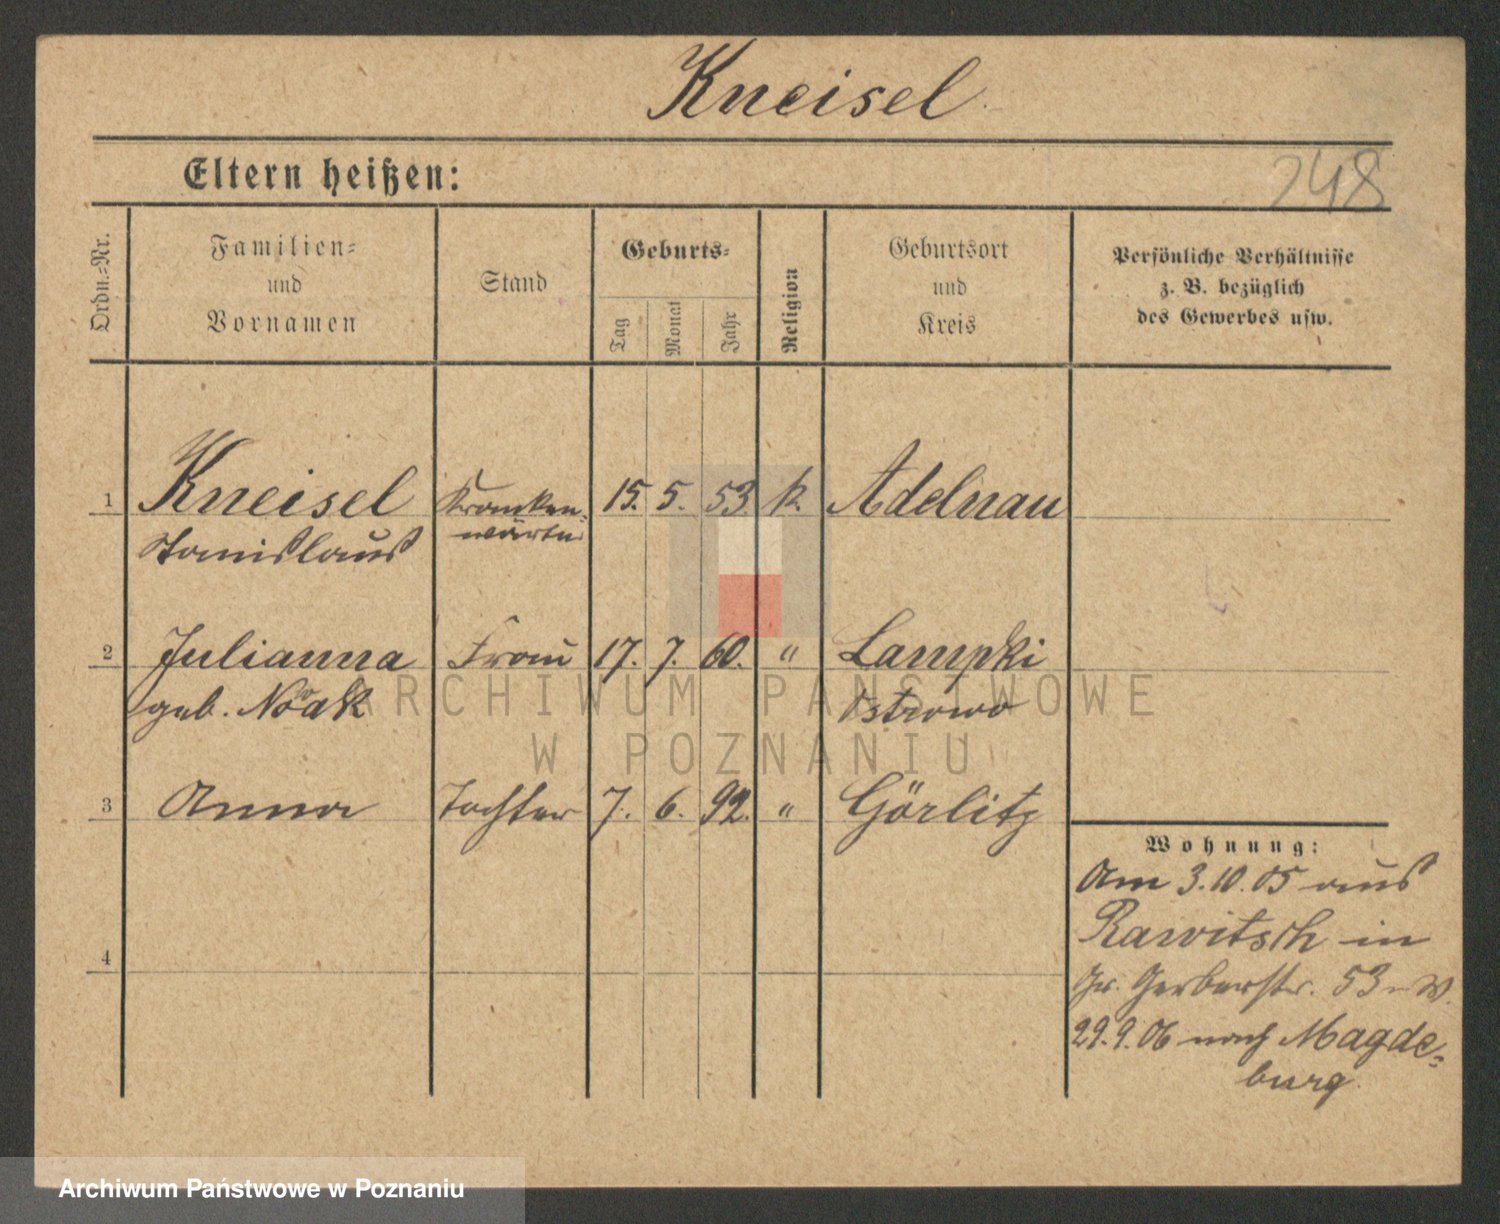 Kneisel
Eltern heißen:
248
Ordn.-Nr.
Familien-
und
Vornamen
Stand
Geburts-
Tag
Monat
Jahr
Religion
Geburtsort
und
Kreis
Persönliche Verhältnisse
z. B. bezüglich
des Gewerbes usw.
1 Kneisel Kranken- 15. 5. 53. k. Adelnau
Stanislaus wärter
2 Julianna Frau 17. 7. 60. " Lampki
geb. Noak Ostrowo
3 Anna Tochter 7. 6. 92. " Görlitz
4
Wohnung:
Am 3.10.05 aus
Rawitsch in
Gr. Gerberstr. 53 W.
29.9.06 nach Magde-
burg.
ARCHIWUM PAŃSTWOWE
W POZNANIU
Archiwum Państwowe w Poznaniu